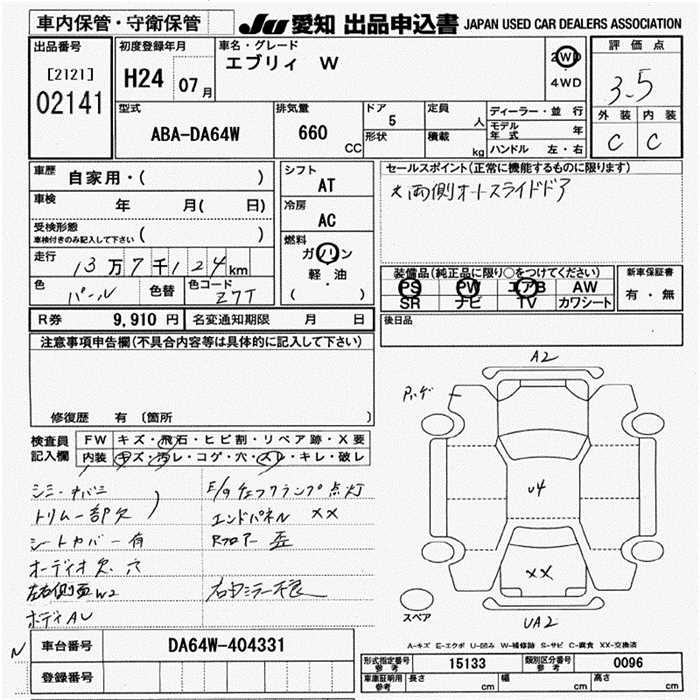 車内保管・守衛保管
JU 愛知 出品申込書 JAPAN USED CAR DEALERS ASSOCIATION
出品番号
[2121]
02141
初度登録年月
H24 07月
車名・グレード
エブリィ W
2WD
・
4WD
評価点
3.5
外装 内装
C C
型式
ABA-DA64W
排気量
660 CC
ドア
5
形状
定員
人
積載
kg
ディーラー・並行
モデル年式 年
ハンドル 左・右
車歴 自家用・( )
車検 年 月( 日)
受検形態
車検付きのみ記入して下さい ( )
走行 13万7千124km
色 パール 色替 色コード Z7T
シフト
AT
冷房
AC
燃料
ガソリン
軽・油
( )
セールスポイント(正常に機能するものに限ります)
両側オートスライドドア
装備品(純正品に限り○をつけてください)
PS PW エアB AW
SR ナビ TV カワシート
新車保証書
有・無
R券 9,910円 名変通知期限 月 日
後日品
注意事項申告欄(不具合内容等は具体的に記入して下さい)
修復歴 有〔箇所 〕
検査員記入欄
FW キズ・飛石・ヒビ割・リペア跡・X要
内装 キズ・汚レ・コゲ・穴・スレ・キレ・破レ
シミ・
トリム一部欠
シートカバー有
オーディオ欠 穴
左右側面W2
ボディAU
E/gチェックランプ点灯
エンドパネル XX
Rフロアー 歪
右ミラー不良
A2
U4
XX
UA2
スペア
A-キズ E-エクボ U-凹み W-補修跡 S-サビ C-腐食 XX-交換済
N
車台番号 DA64W-404331
登録番号
形式指定番号 参考 15133 類別区分番号 参考 0096
車庫証明用 参考 長さ cm 幅 cm 高さ cm